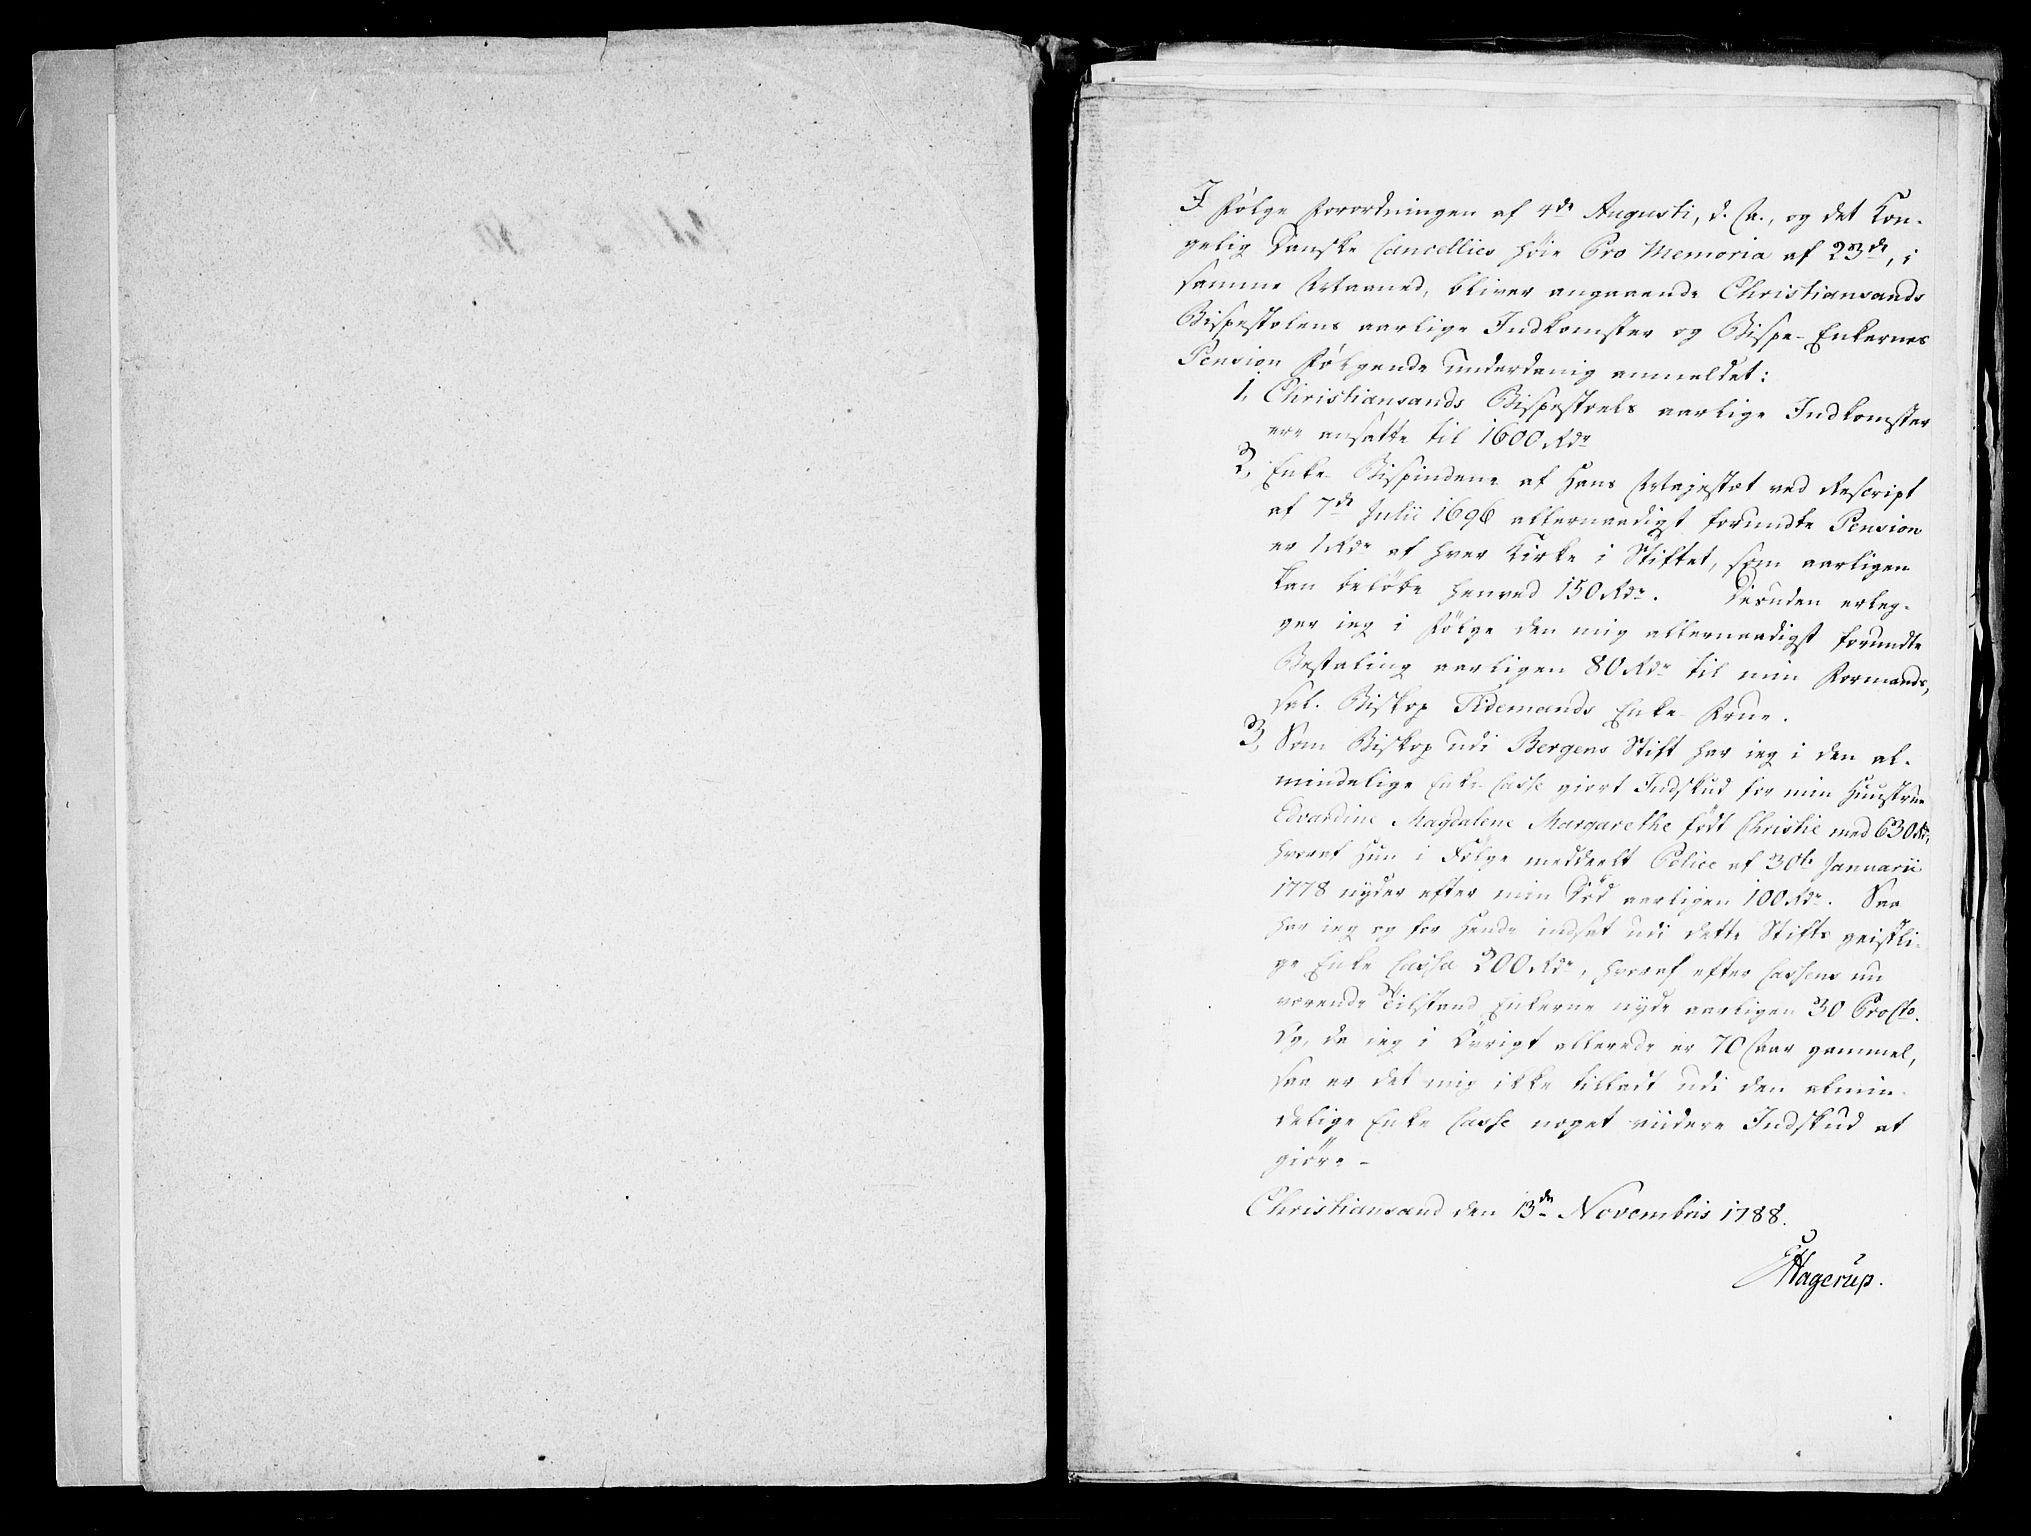 I Følge Forordningen af 4de Augusti, d. A., og det Kon-
gelig Danske Cancellies høie Pro Memoria af 23de, i
samme Maaned, bliver angaaende Christiansands
Bispestolens aarlige Indkomster og Bispe-Enkernes
Pension følgende underdanig anmeldet:
1, Christiansands Bispestoels aarlige Indkomster
ere ansatte til 1600 Rdr
2, Enke-Bispindens af Hans Majestæt ved Rescript
af 7de Julii 1696 allernaadigst forundte Pension
er 1 Rdr af hver Kirke i Stiftet, som aarligen
kan beløbe henved 150 Rdr. Desuden erleg-
ger ieg i Følge den mig allernaadigst forundte
Bestaling aarligen 80 Rdr til min Formands,
sal. Biskop Tidemands Enke-Frue.
3, Som Biskop udi Bergens Stift har ieg i den al-
mindelige Enke-Casse giort Indskud for min Huustrue
Edvardine Magdalene Margarethe født Christie med 630 Rd,
hvoraf hun i Følge meddeelt Police af 30te Januarii
1778 nyder efter min Død aarligen 100 Rdr. Saa
har ieg og for Hende indsat udi dette Stifts geistli-
ge Enke Cassa 200 Rdr, hvoraf efter Cassens nu
værende Tilstand Enkerne nyde aarligen 30 ProCto.
Og, da ieg i Øvrigt allerede er 70 Aar gammel,
saa er det mig ikke tilladt udi den almin-
delige Enke Casse noget viidere Indskud at
giøre-
Christiansand den 13de Novembris 1788.
Hagerup.